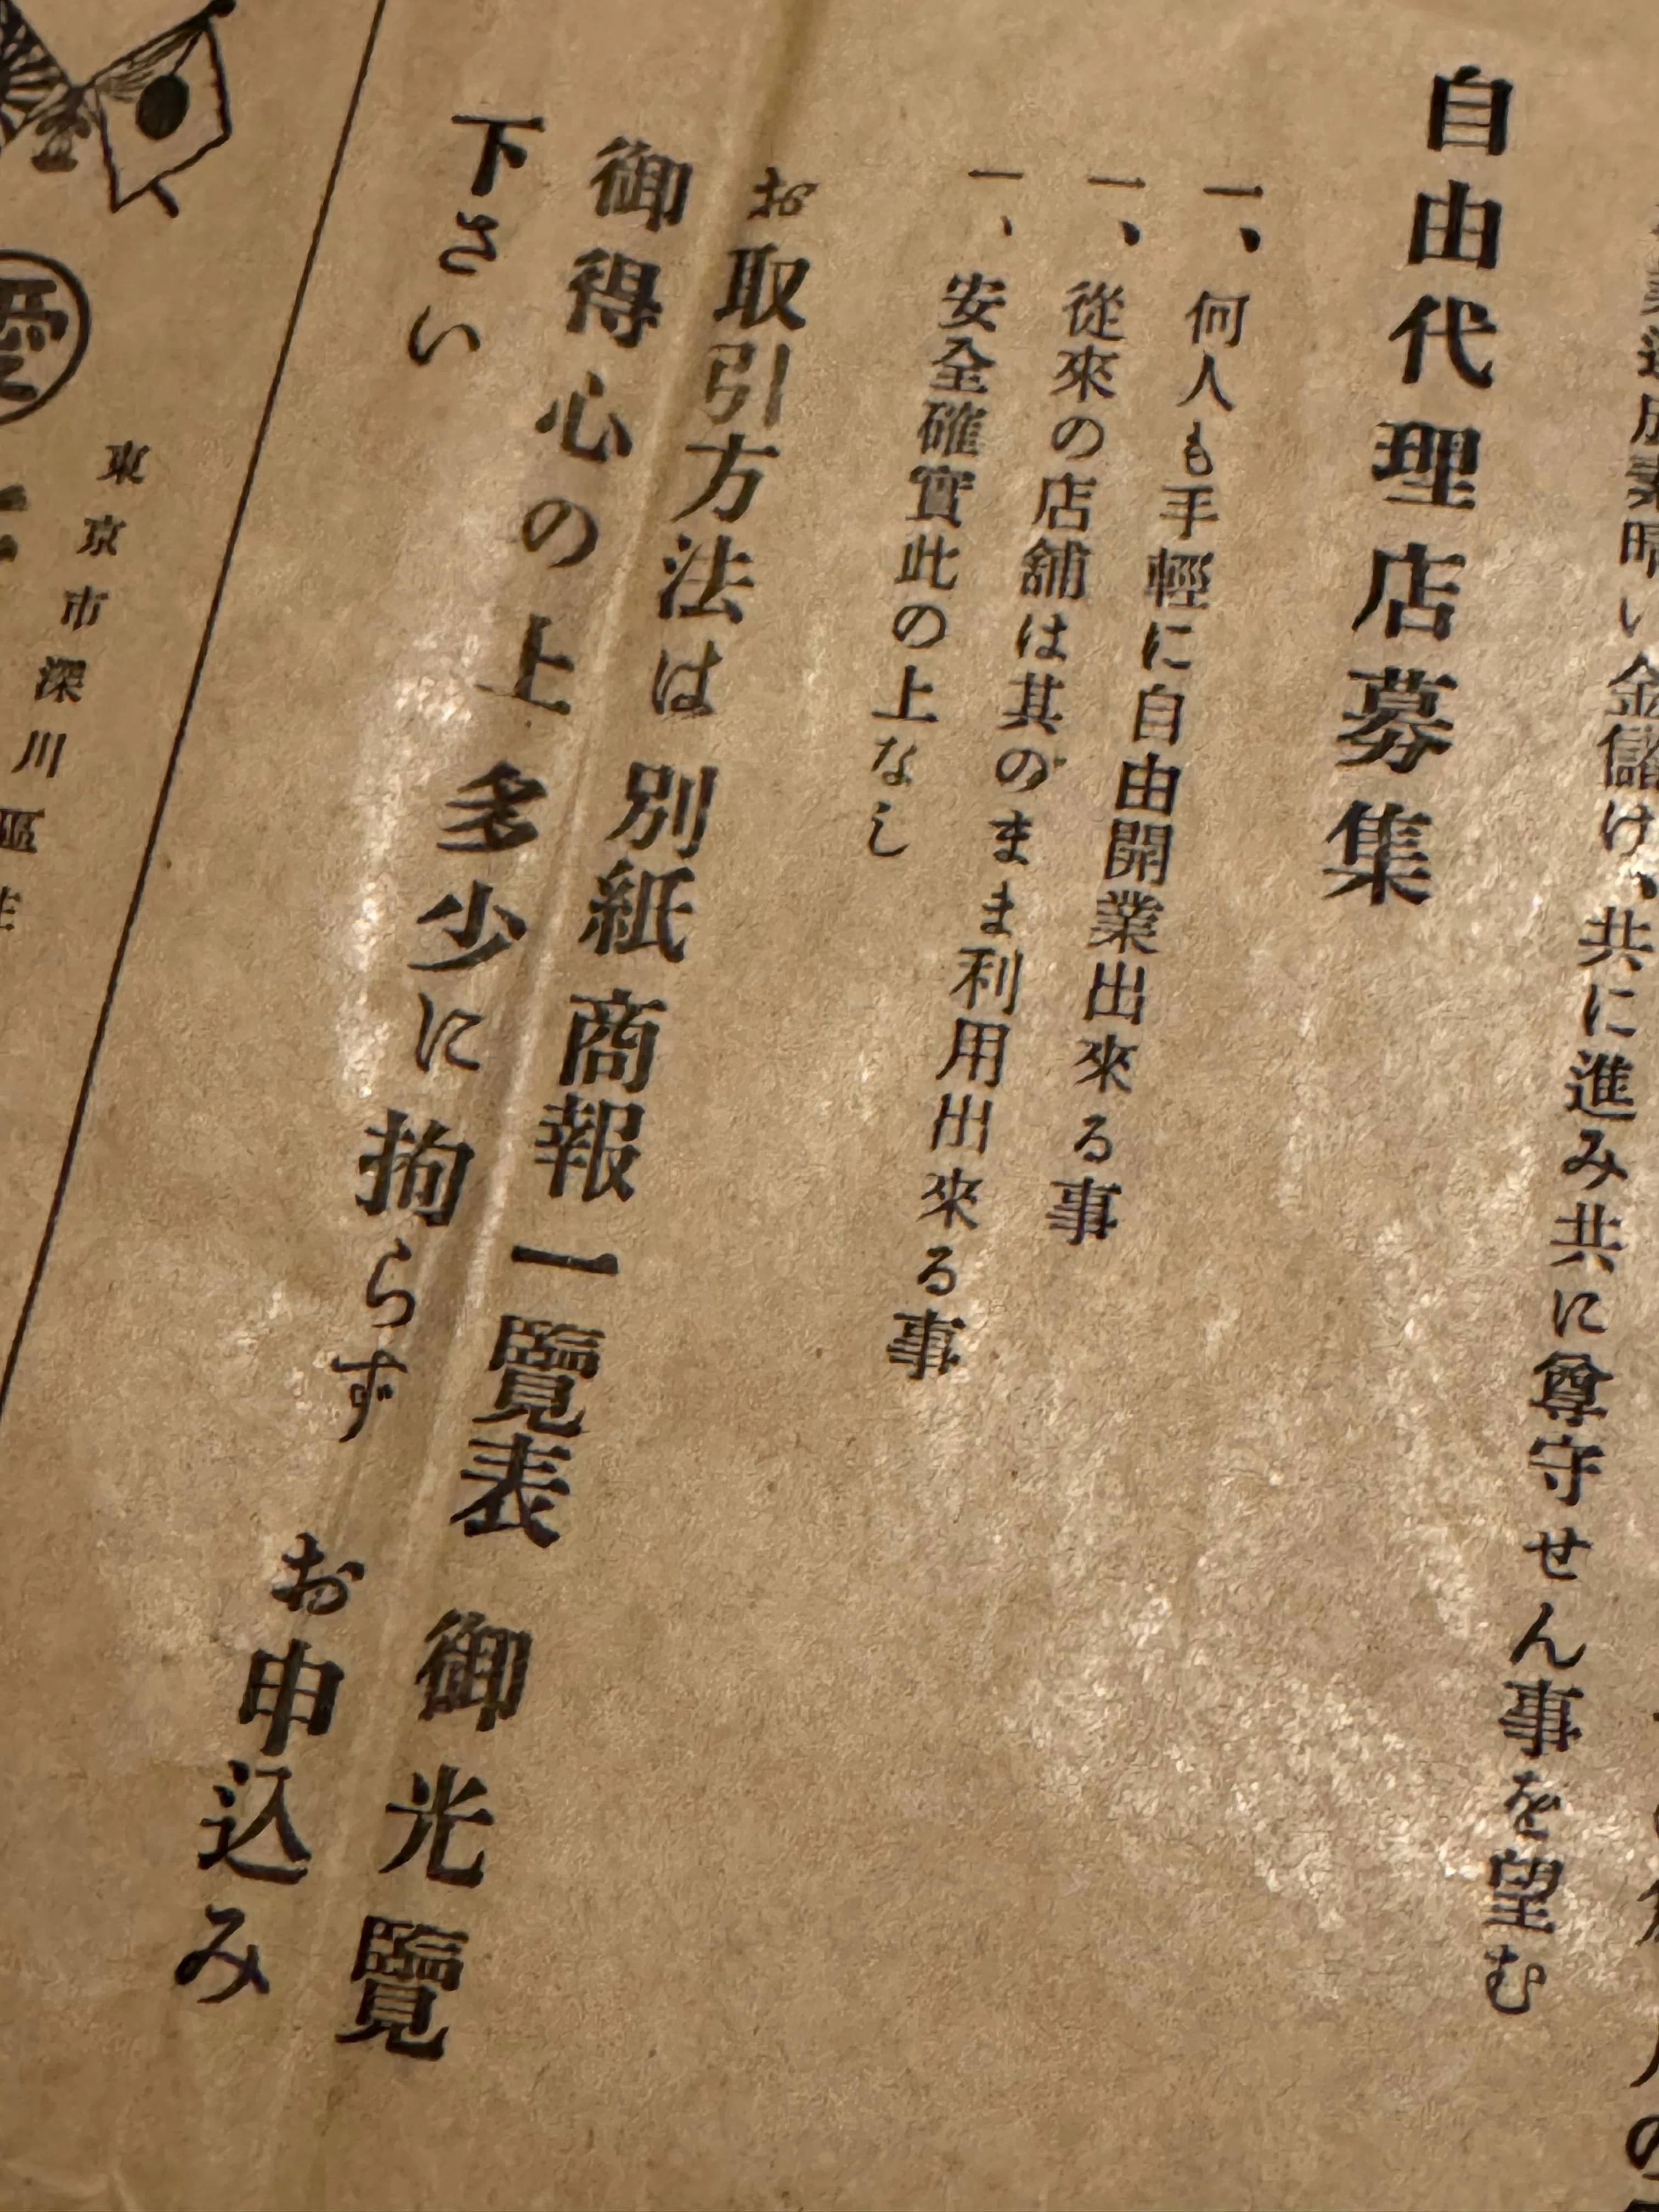 い金儲け、共に進み共に尊守せん事を望む
自由代理店募集
一、何人も手輕に自由開業出來る事
一、從來の店舗は其のまま利用出來る事
一、安全確實此の上なし
お取引方法は別紙商報一覽表御光覽
御得心の上多少に拘らずお申込み
下さい
東京市深川區
愛